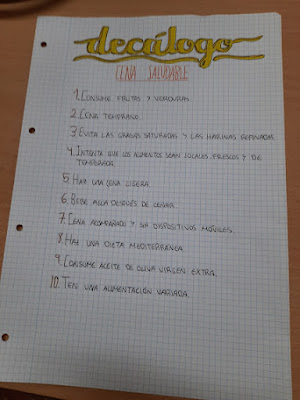 decálogo
CENA SALUDABLE
1. CONSUME FRUTAS Y VERDURAS.
2. CENA TEMPRANO.
3. EVITA LAS GRASAS SATURADAS Y LAS HARINAS REFINADAS.
4. INTENTA QUE LOS ALIMENTOS SEAN LOCALES, FRESCOS Y DE
TEMPORADA.
5. HAZ UNA CENA LIGERA.
6. BEBE AGUA DESPUÉS DE CENAR.
7. CENA ACOMPAÑADO Y SIN DISPOSITIVOS MÓVILES.
8. HAZ UNA DIETA MEDITERRANEA.
9. CONSUME ACEITE DE OLIVA VIRGEN EXTRA.
10. TEN UNA ALIMENTACIÓN VARIADA.